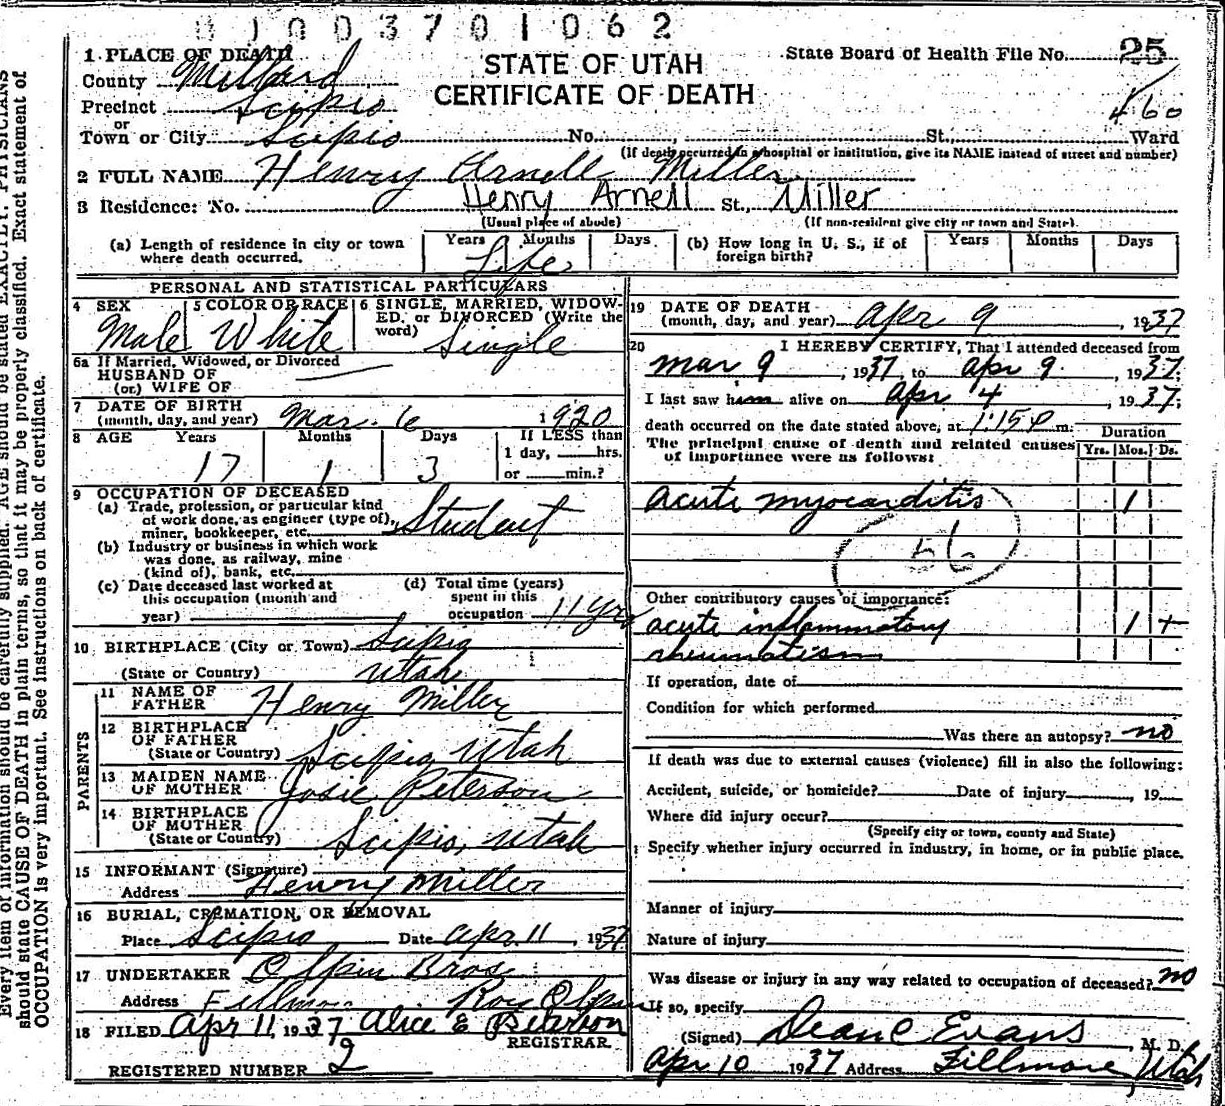 01003701062
1 PLACE OF DEATH
STATE OF UTAH
CERTIFICATE OF DEATH
State Board of Health File No. 25
460
County Millard
Precinct Scipio
or
Town or City Scipio No. St., Ward
(If death occurred in a hospital or institution, give its NAME instead of street and number)
2 FULL NAME Henry Arnell Miller
3 Residence: No. Henry Arnell St., Miller
(Usual place of abode) (If non-resident give city or town and State).
(a) Length of residence in city or town where death occurred. Years Months Days Life
(b) How long in U. S., if of foreign birth? Years Months Days
PERSONAL AND STATISTICAL PARTICULARS
4 SEX Male
5 COLOR OR RACE White
6 SINGLE, MARRIED, WIDOWED, or DIVORCED (Write the word) Single
6a If Married, Widowed, or Divorced
HUSBAND OF
(or) WIFE OF
7 DATE OF BIRTH
(month, day, and year) Mar. 6 1920
8 AGE Years Months Days If LESS than
17 1 3 1 day, hrs.
or min.?
9 OCCUPATION OF DECEASED
(a) Trade, profession, or particular kind
of work done, as engineer (type of),
miner, bookkeeper, etc. Student
(b) Industry or business in which work
was done, as railway, mine
(kind of), bank, etc.
(c) Date deceased last worked at
this occupation (month and
year)
(d) Total time (years)
spent in this
occupation 11 yrs
10 BIRTHPLACE (City or Town) Scipio
(State or Country) Utah
PARENTS
11 NAME OF
FATHER Henry Miller
12 BIRTHPLACE
OF FATHER
(State or Country) Scipio, Utah
13 MAIDEN NAME
OF MOTHER Josie Peterson
14 BIRTHPLACE
OF MOTHER
(State or Country) Scipio, Utah
15 INFORMANT (Signature)
Address Henry Miller
16 BURIAL, CREMATION, OR REMOVAL
Place Scipio Date Apr. 11, 1937
17 UNDERTAKER Olpin Bros
Address Fillmore Roy Olpin
18 FILED Apr 11, 1937 Alice E Peterson
REGISTRAR.
9
REGISTERED NUMBER 2
19 DATE OF DEATH
(month, day, and year) Apr 9, 1937
20 I HEREBY CERTIFY, That I attended deceased from
Mar 9, 1937, to Apr 9, 1937;
I last saw him alive on Apr 4, 1937;
death occurred on the date stated above, at 1:15 P m.
The principal cause of death and related causes
of importance were as follows:
Duration
Yrs. Mos. Ds.
Acute myocarditis 1
56
Other contributory causes of importance:
acute inflammatory 1 +
rheumatism
If operation, date of
Condition for which performed
Was there an autopsy? no
If death was due to external causes (violence) fill in also the following:
Accident, suicide, or homicide? Date of injury , 19
Where did injury occur?
(Specify city or town, county and State)
Specify whether injury occurred in industry, in home, or in public place.
Manner of injury
Nature of injury
Was disease or injury in any way related to occupation of deceased? no
If so, specify
(Signed) Dean C Evans, M. D.
Apr 10 1937 Address Fillmore, Utah
Every item of information should be carefully supplied. AGE should be stated EXACTLY. PHYSICIANS
should state CAUSE OF DEATH in plain terms, so that it may be properly classified. Exact statement of
OCCUPATION is very important. See instructions on back of certificate.